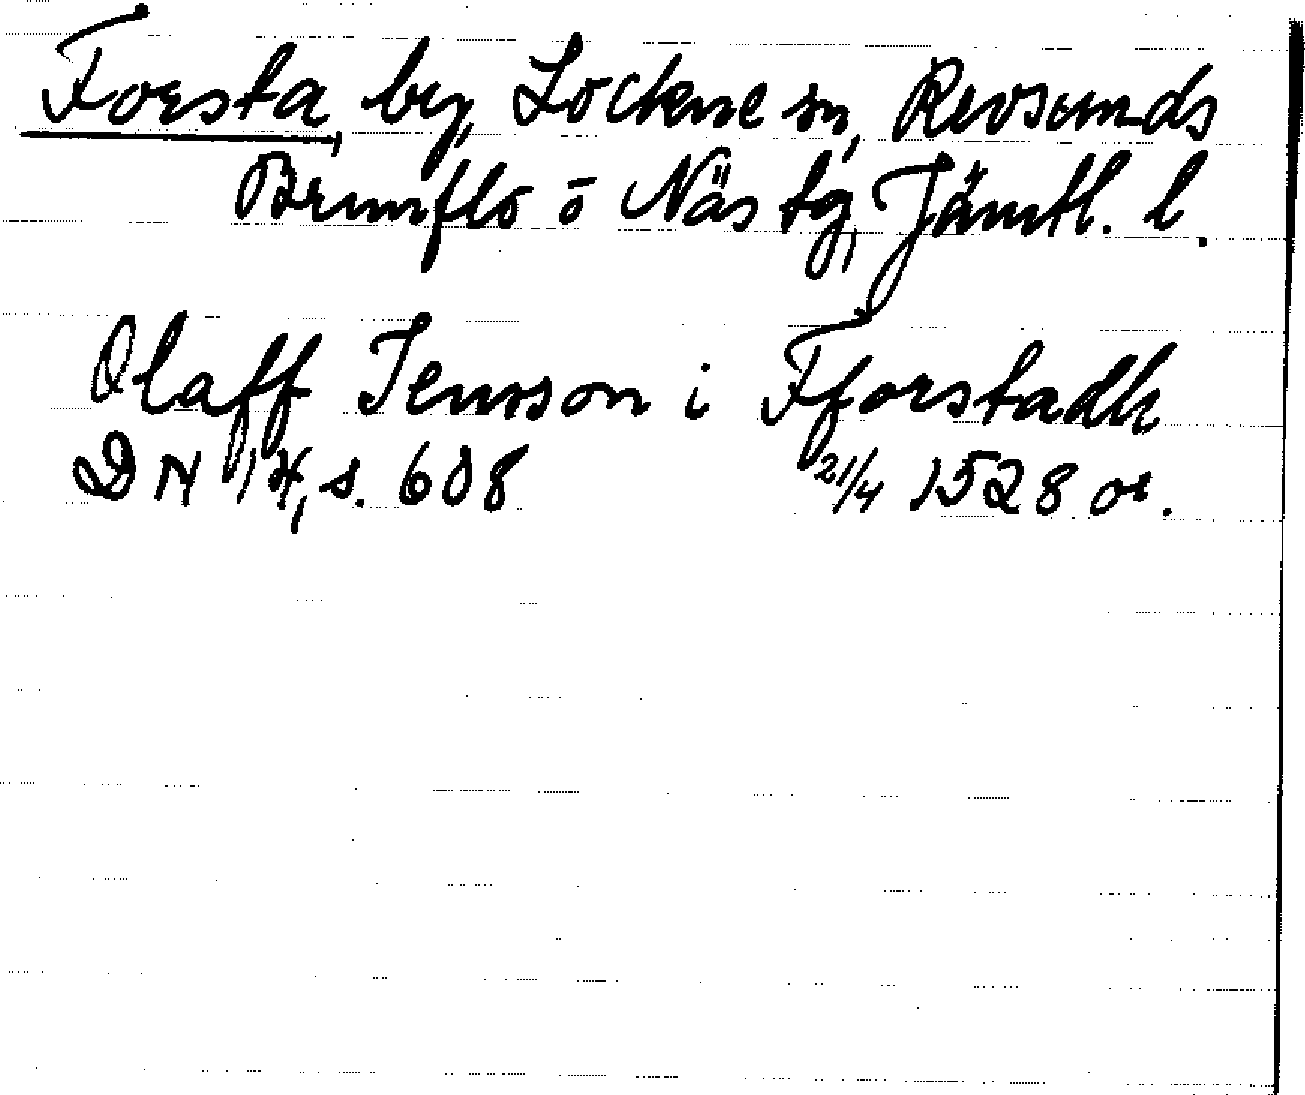 Forsta, by, Lockne sn, Revsunds
Brunflo o Näs tg, Jämtl. l.
Olaff Jensson i Fforstadh
DN 14, s. 608 21/4 1528 or.